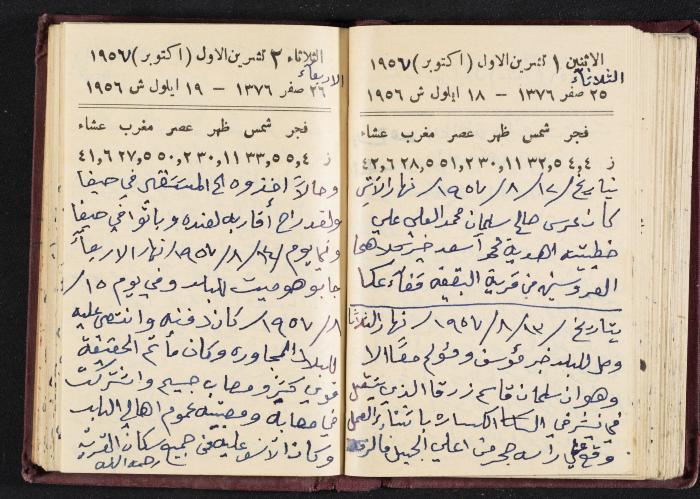 الاثنين ١ تشرين الاول (اكتوبر) ١٩٥٧
الثلاثاء
٢٥ صفر ١٣٧٦ – ١٨ ايلول ش ١٩٥٦
فجر شمس ظهر عصر مغرب عشاء
ز ٤,٤ ٥ ٣٢,٥ ٣٠,١١ ٥١,٢ ٢٨,٥ ٤٢,٦
بتاريخ /١٢/ ٨/ ١٩٥٧/ نهار الاثنين
كان عرس صالح سلمان محمد العلي على
خطيبته الهدية محمد أسعد خير
العروس من قرية البقيعة قضاء عكا
بتاريخ /١٣/ ٨/ ١٩٥٧/ نهار الثلاثاء
وصل للبلد خبر مؤسف ومؤلم حقا الا
وهو ان سلمان قاسم زرقا الذي يشتغل
في نيشر في الكساره باثناء العمل
وقع على رأسه حجر من اعلي الجبل
الثلاثاء ٢ تشرين الاول (اكتوبر) ١٩٥٧
الاربعاء
٢٦ صفر ١٣٧٦ – ١٩ ايلول ش ١٩٥٦
فجر شمس ظهر عصر مغرب عشاء
ز ٥,٤ ٥ ٣٣,٥ ٣٠,١١ ٥٠,٢ ٢٧,٥ ٤١,٦
وحالاً اخذوه الى المستشفى في حيفا
ولقد راح أقاربه لعنده وباتوا في حيفا
وفي يوم /١٤/ ٨/ ١٩٥٧/ نهار الاربعاء
جابوه وميت للبلد وفي يوم ١٥/
٨/ ١٩٥٧/ كان دفنه وانتعى عليه
للبلاد المجاوره وكان مأتم الحقيقة
قوي كبير ومصاب جسيم واشتركت
في مصابه ومصيبته عموم اهالي البلد
وكان الأسف عليه من جميع سكان القرية
رحمه الله